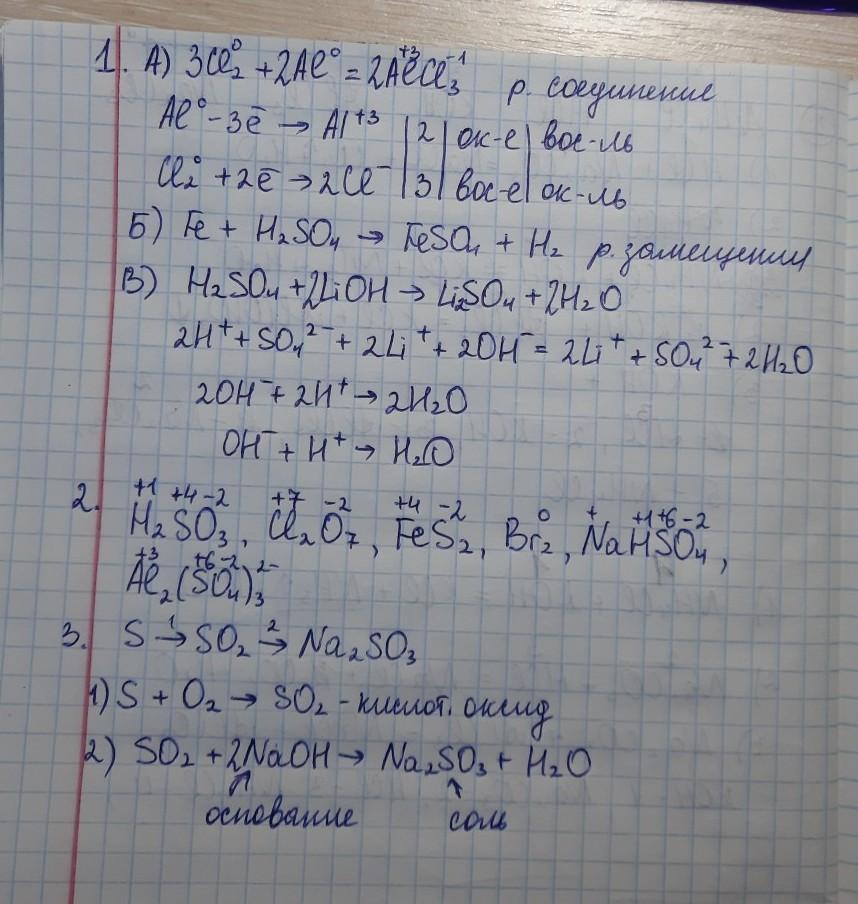 1. А) 3Cl₂⁰ + 2Al⁰ = 2Al⁺³Cl₃⁻¹ р. соединение
Al⁰ - 3ē → Al⁺³ | 2 | ок-е | вос-ль
Cl₂⁰ + 2ē → 2Cl⁻ | 3 | вос-е | ок-ль
Б) Fe + H₂SO₄ → FeSO₄ + H₂ р. замещения
В) H₂SO₄ + 2LiOH → Li₂SO₄ + 2H₂O
2H⁺ + SO₄²⁻ + 2Li⁺ + 2OH⁻ = 2Li⁺ + SO₄²⁻ + 2H₂O
2OH⁻ + 2H⁺ → 2H₂O
OH⁻ + H⁺ → H₂O
+1 +4 -2 +7 -2 +4 -2 0 + +1 +6 -2
2. H₂SO₃, Cl₂O₇, FeS₂, Br₂, NaHSO₄,
+3 +6 -2 2-
Al₂(SO₄)₃
3. S →¹ SO₂ →² Na₂SO₃
1) S + O₂ → SO₂ - кислот. оксид
2) SO₂ + 2NaOH → Na₂SO₃ + H₂O
основание соль